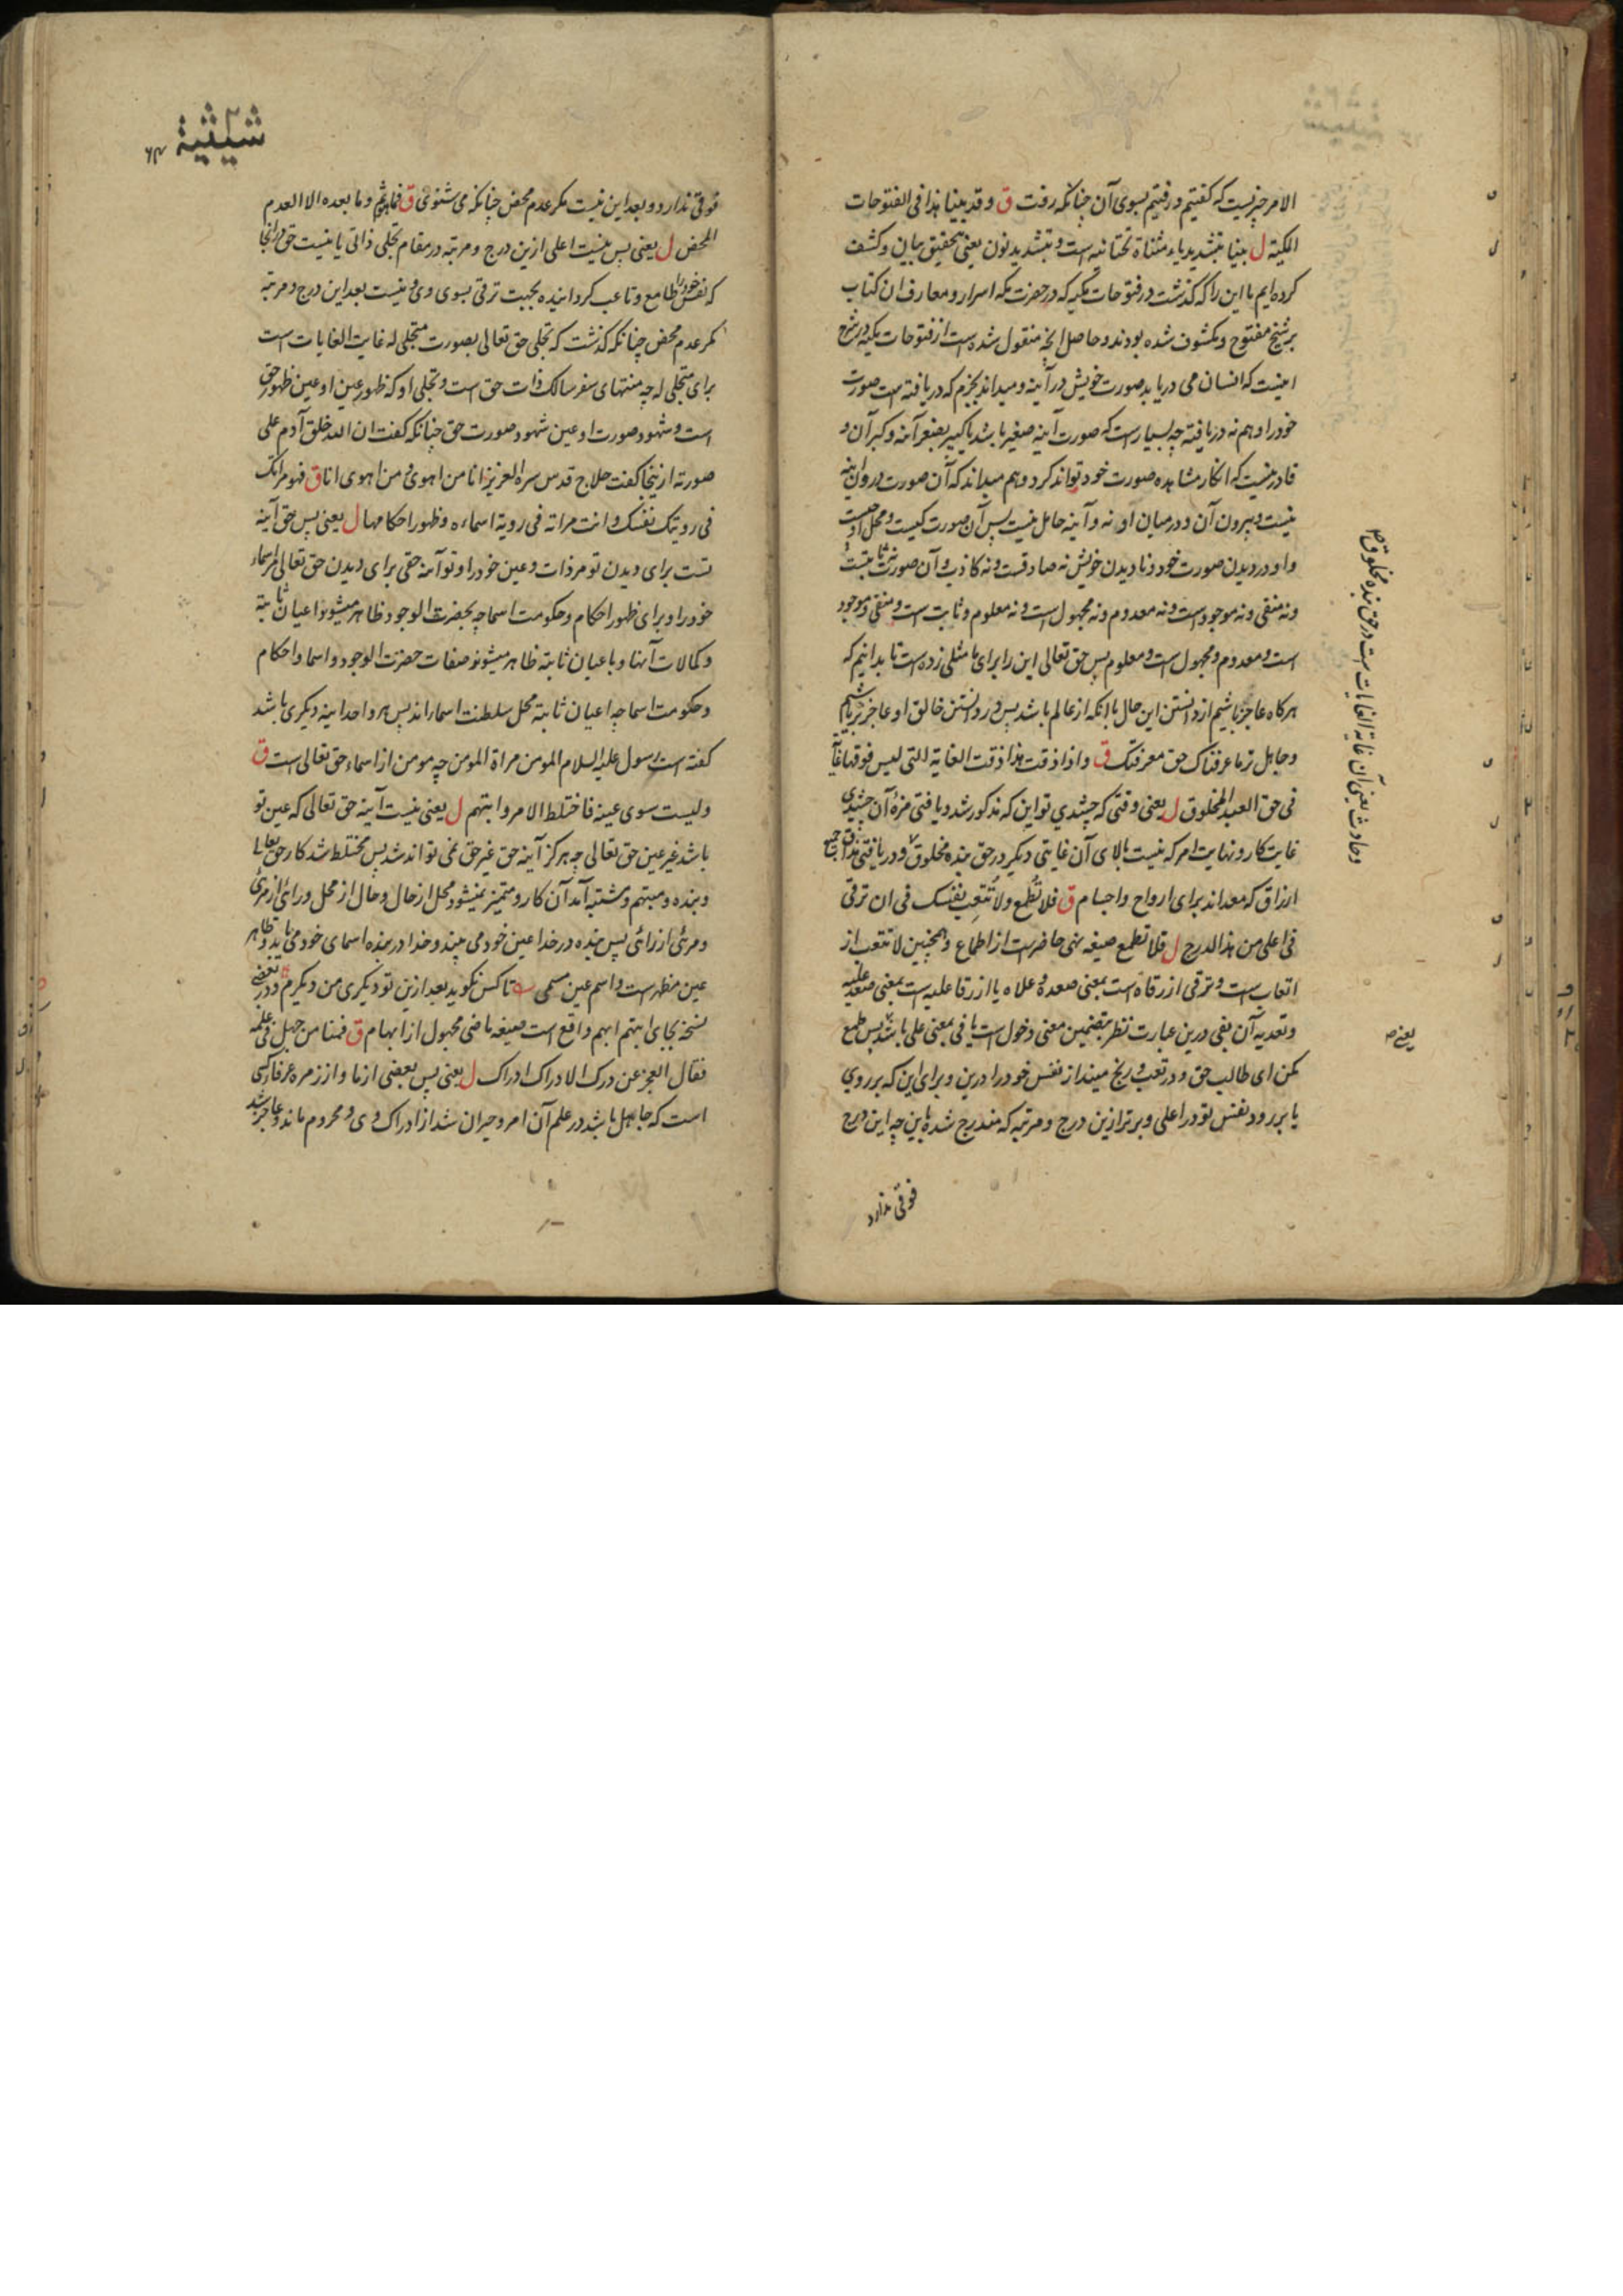 الامر چیزیست که گفتیم و رفتیم بسوی آن چنانکه رفت ق و قد بینا هذا فی الفتوحات
المکیة ل بینا بتشدید یاء مثناة تحتانیه است و بتشدید نون یعنی بتحقیق بیان و کشف
کرده ایم ما این را که گذشت در فتوحات مکیه که در حضرت مکه اسرار و معارف ان کتاب
بر شیخ مفتوح و مکشوف شده بودند و حاصل انچه منقول شده است از فتوحات مکیه در شرح
اینست که انسان می دریابد صورت خویش در آینه و میداند بجزم که دریافته است صورت
خود را و هم نه دریافته چه بسیار است که صورت آینه صغیر باشد یا کبیر بصغر آینه و کبر آن و
قادر نیست که انکار مشاهده صورت خود تواند کرد و هم میداند که آن صورت درون آینه
نیست و بیرون آن و درمیان او نه و آینه حامل نیست پس آن صورت کیست و محل او چیست
و او در دیدن صورت خود و نادیدن خویش نه صادقست و نه کاذب و آن صورت نه ثابتست
و نه منفی و نه موجود است و نه معدوم و نه مجهول است و نه معلوم و ثابت است و منفی و موجود
است و معدوم و مجهول است و معلوم پس حق تعالی این را برای ما مثلی زده است تا بدانیم که
هرکاه عاجز باشیم از دانستن این حال با انکه از عالم باشد پس در دانستن خالق او عاجزتر باشیم
و جاهل تر ما عرفناک حق معرفتک ق و اذا ذقت هذا ذقت الغایة التی لیس فوقها غایة
فی حق العبد المخلوق ل یعنی وقتی که چشیدی تو این که مذکور شد و یافتی مزه آن چشیدی
غایت کار و نهایت امر که نیست بالای آن غایتی دیگر در حق بنده مخلوق و دریافتی مذاق جمیع
ارزاق که معد اند برای ارواح و اجسام ق فلا تطمع ولا تتعب نفسک فی ان ترقی
فی اعلی من هذا الدرج ل فلا تطمع صیغه نهی حاضر است از اطماع و همچنین لا تتعب از
اتعاب است و ترقی از رقاه است بمعنی صعده و علاه یا از رقا علیه است بمعنی صعد علیه
و تعدیه آن بفی درین عبارت نظر بتضمین معنی دخول است یا فی بمعنی علی باشد پس طمع
مکن ای طالب حق و در تعب و رنج مینداز نفس خود را درین و برای این که برروی
یا برود نفس تو در اعلی و برتر ازین درج و مرتبه که مندرج شده باین چه این درج
فوقی ندارد
و حادث یعنی آن غایة الغایات است در حق بنده مخلوق ص
یعنی ص
شیثیة
فوقی ندارد و بعد این نیست مکر عدم محض چنانکه می شنوی ق فما هو ثم و ما بعده الا العدم
المحض ل یعنی پس نیست اعلی ازین درج و مرتبه در مقام تجلی ذاتی یا نیست حق درانجا
که نفس خود را طامع و تاعب کرداینده بجهت ترقی بسوی وی و نیست بعد این درج و مرتبه
مکر عدم محض چنانکه گذشت که تجلی حق تعالی بصورت متجلی له غایت الغایات است
برای متجلی له چه منتهای سفر سالک ذات حق است و تجلی او که ظهور عین او عین ظهور حق
است و شهود صورت او عین شهود صورت حق چنانکه گفت ان الله خلق آدم علی
صورته ازینجا گفت حلاج قدس سره العزیز انا من اهوی و من اهوی انا ق فهو مراتک
فی رویتک نفسک و انت مراته فی رویة اسماءه و ظهور احکامها ل یعنی پس حق آینه
تست برای دیدن تو مر ذات و عین خود را و تو آینه حقی برای دیدن حق تعالی مر اسماء
خود را و برای ظهور احکام و حکومت اسما چه بحضرت الوجود ظاهر میشوند اعیان ثابتة
و کمالات آنها و باعیان ثابتة ظاهر میشوند صفات حضرت الوجود و اسما و احکام
و حکومت اسما چه اعیان ثابتة محل سلطنت اسما اند پس هر واحد آینه دیکری باشد
گفته است رسول علیه السلام المومن مراة المومن چه مومن از اسماء حق تعالی است ق
ولیست سوی عینه فاختلط الامر وانبهم ل یعنی نیست آینه حق تعالی که عین تو
باشد غیر عین حق تعالی چه هرکز آینه حق غیر حق نمی تواند شد پس مختلط شد کار حق تعالی
و بنده و مبهم و مشتبه آمد آن کار و متمیز نمیشود محل از حال و حال از محل و رائی از مرئی
و مرئی از رائی پس بنده در خدا عین خود می بیند و خدا در بنده اسمای خود می یابد و ظاهر
عین مظهر است و اسم عین مسمی تا کس نکوید بعد ازین تو دیکری من دیکرم و در بعضی
نسخه بجای انبهم ابهم واقع است صیغه ماضی مجهول از ابهام ق فمنا من جهل فی علمه
فقال العجز عن درک الادراک ادراک ل یعنی پس بعضی از ما و از زمره عرفا کسی
است که جاهل باشد در علم آن امر و حیران شد از ادراک وی و محروم ماند و عاجز شد